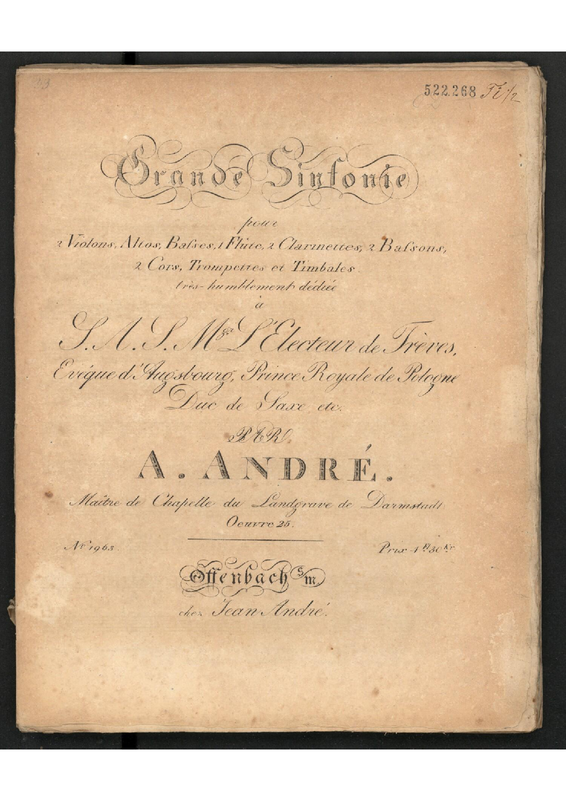 522.268
Grande Sinfonie
pour
2 Violons, Altos, Baſses, 1 Flûte, 2 Clarinettes, 2 Baſsons,
2 Cors, Trompettes et Timbales
très-humblement dédiée
à
S. A. S. Mgr L'Electeur de Trèves,
Evéque d'Augsbourg, Prince Royale de Pologne
Duc de Saxe etc.
PAR
A. ANDRÉ.
Maître de Chapelle du Landgrave de Darmstadt
Oeuvre 25
No 1963 Prix
Offenbach s/m
chez Jean André.